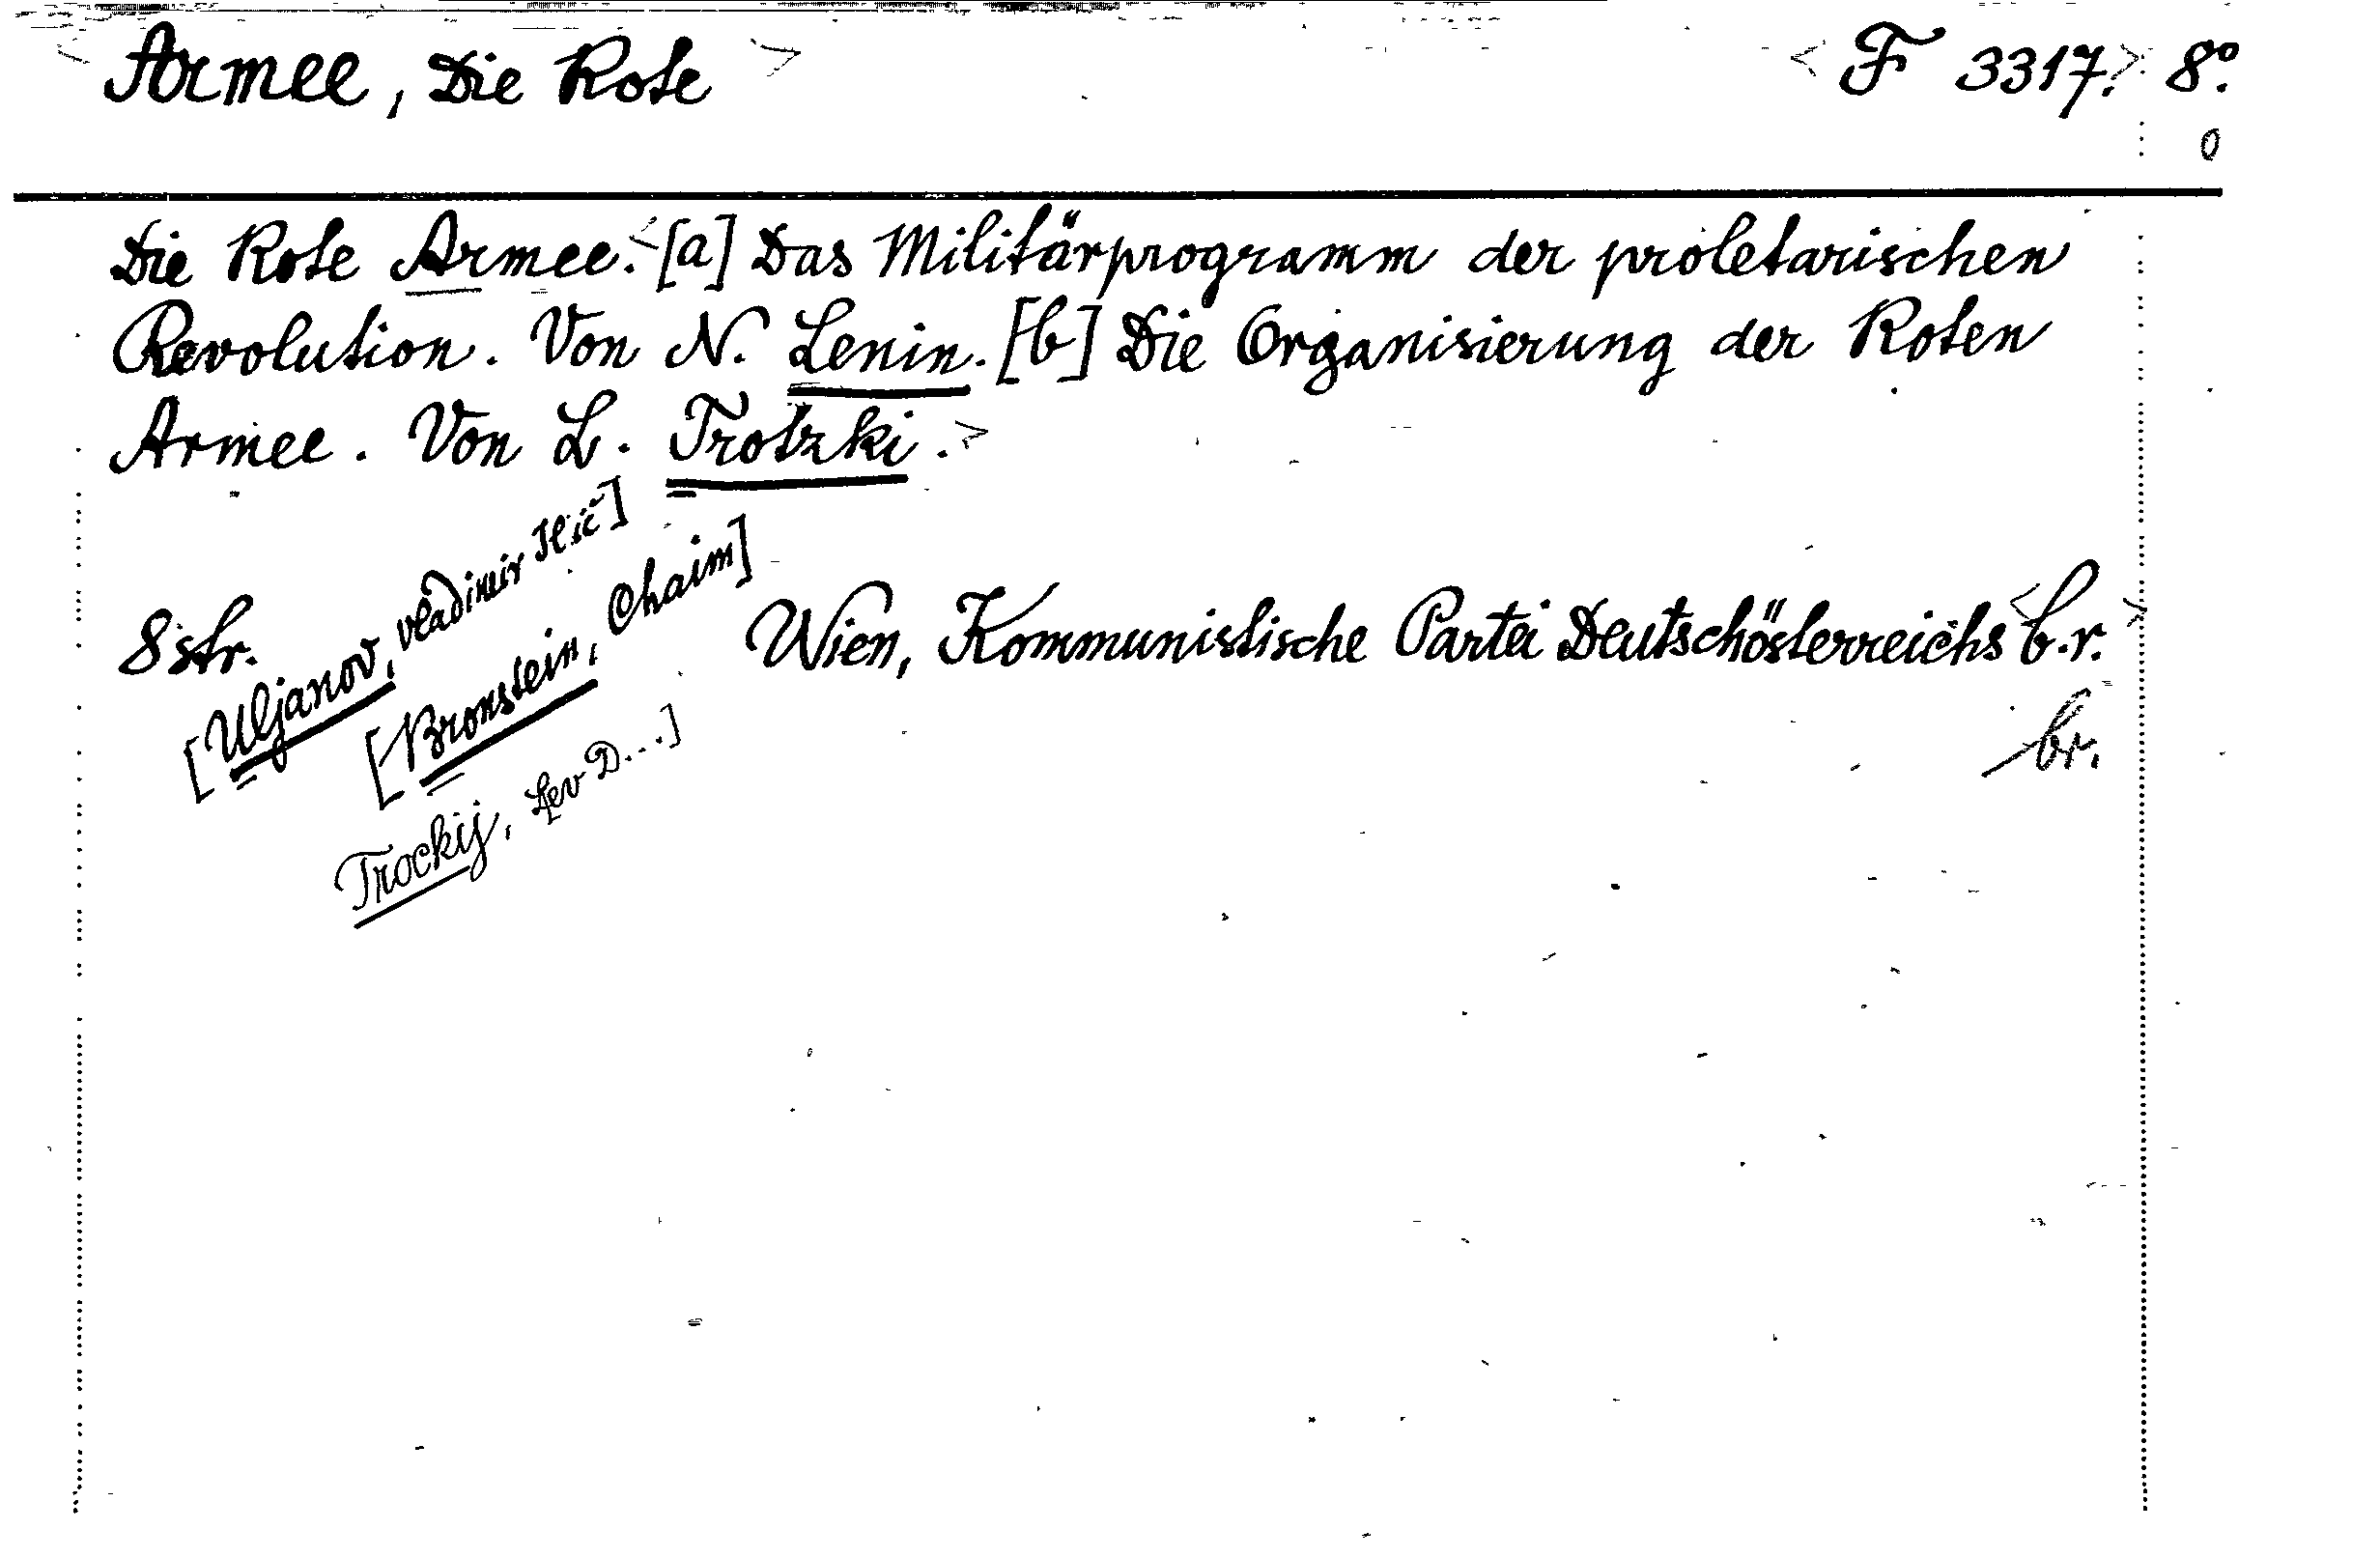 < Armee, Die Rote > < F 3317. > 8°.
0
Die Rote Armee. < [a] Das Militärprogramm der proletarischen
Revolution. Von N. Lenin. [b] Die Organisierung der Roten
Armee. Von L. Trotzki. >
8 str.
[Uljanov, Vladimir Ilič]
[Bronstein, Chaim]
Trockij, Lev D...]
Wien, Kommunistische Partei Deutschösterreichs < b.r. >
br.